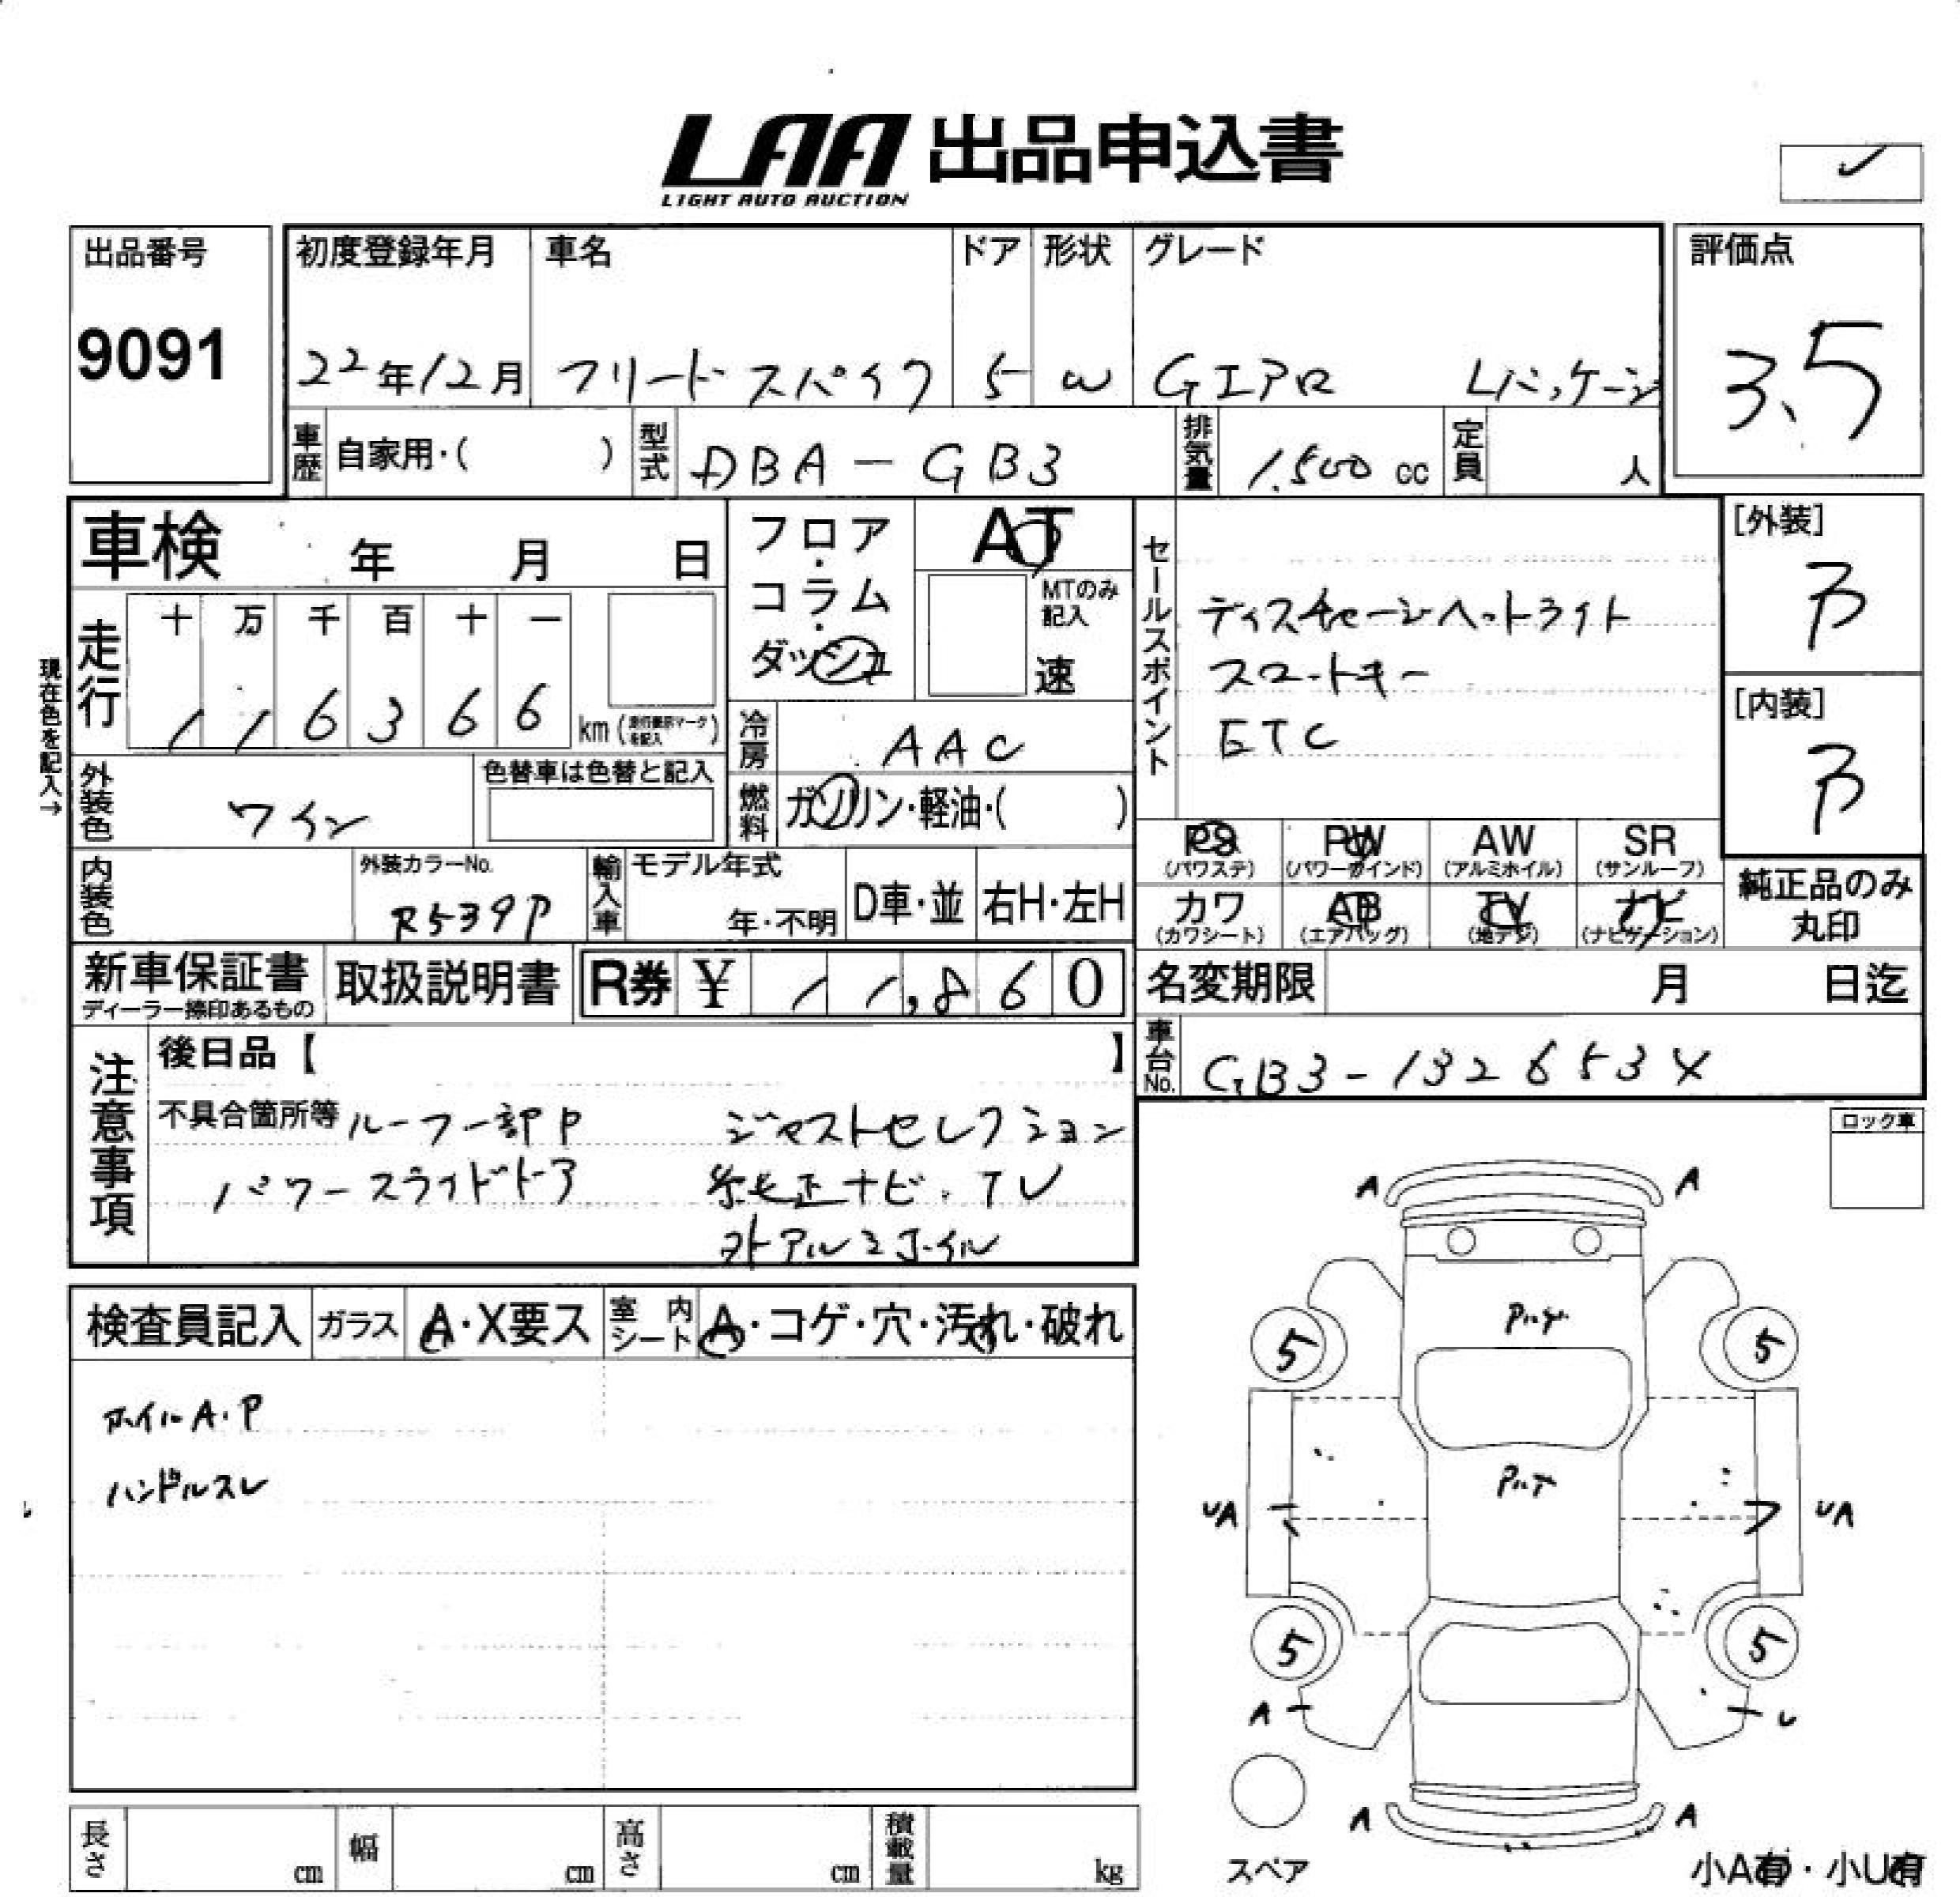 LAA 出品申込書
LIGHT AUTO AUCTION
出品番号
9091
初度登録年月
22年12月
車名
フリードスパイク
ドア
5
形状
W
グレード
Gエアロ Lパッケージ
評価点
3.5
車歴 自家用・( )
型式 DBA-GB3
排気量 1,500 cc
定員 人
車検 年 月 日
フロア・コラム・ダッシュ
AT
MTのみ記入
速
走行
十 万 千 百 十 一
1 1 6 3 6 6 km
現在色を記入→
冷房 AAC
燃料 ガソリン・軽油・( )
外装色 ワイン
色替車は色替と記入
内装色
外装カラーNo.
R539P
輸入車
モデル年式
年・不明
D車・並
右H・左H
セールスポイント
ディスチャージヘットライト
スマートキー
ETC
[外装]
B
[内装]
B
PS (パワステ)
PW (パワーウインド)
AW (アルミホイル)
SR (サンルーフ)
カワ (カワシート)
AB (エアバッグ)
TV (地デジ)
ナビ (ナビゲーション)
純正品のみ丸印
新車保証書
ディーラー捺印あるもの
取扱説明書
R券 ¥ 11,860
名変期限 月 日迄
車台No. GB3-1326534
注意事項
後日品【 】
不具合箇所等 ルーフ一部P ジャストセレクション
パワースライドドア 純正ナビ・TV
外アルミホイル
ロック車
検査員記入
ガラス A・X要ス
室内シート A・コゲ・穴・汚れ・破れ
ホイルA・P
ハンドルスレ
A A
5 5
UA UA
5 5
A U
A A
スペア
小A有・小U有
長さ cm
幅 cm
高さ cm
積載量 kg